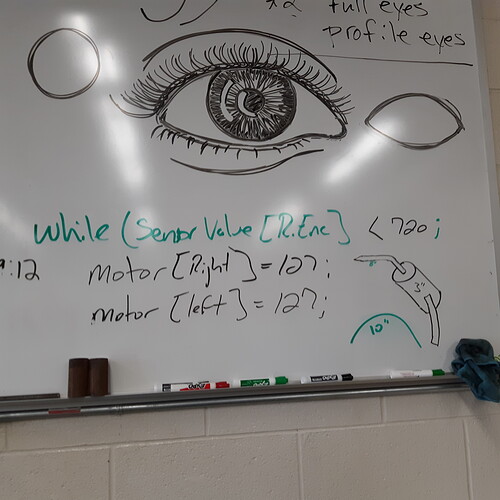 x2 full eyes
profile eyes
while (Sensor Value [R.Enc] < 720;
9:12
motor [Right] = 127;
motor [left] = 127;
3"
10"
EXPO